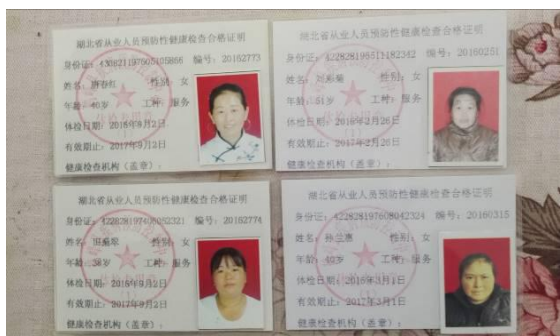 湖北省从业人员预防性健康检查合格证明
编号：20162773
性别：女
年龄：40岁 工种：服务
体检日期：2016年9月2日
有效期止：2017年9月2日
健康检查机构（盖章）：
湖北省从业人员预防性健康检查合格证明
身份证：422828196511182342 编号：20160251
性别：女
年龄：51岁 工种：服务
体检日期：2016年2月26日
有效期止：2017年2月26日
健康检查机构（盖章）：
湖北省从业人员预防性健康检查合格证明
编号：20162774
性别：女
工种：服务
体检日期：2016年9月2日
有效期止：2017年9月2日
健康检查机构（盖章）：
湖北省从业人员预防性健康检查合格证明
身份证：422828197608042324 编号：20160315
姓名：孙兰惠 性别：女
年龄：40岁 工种：服务
体检日期：2016年3月1日
有效期止：2017年3月1日
健康检查机构（盖章）：